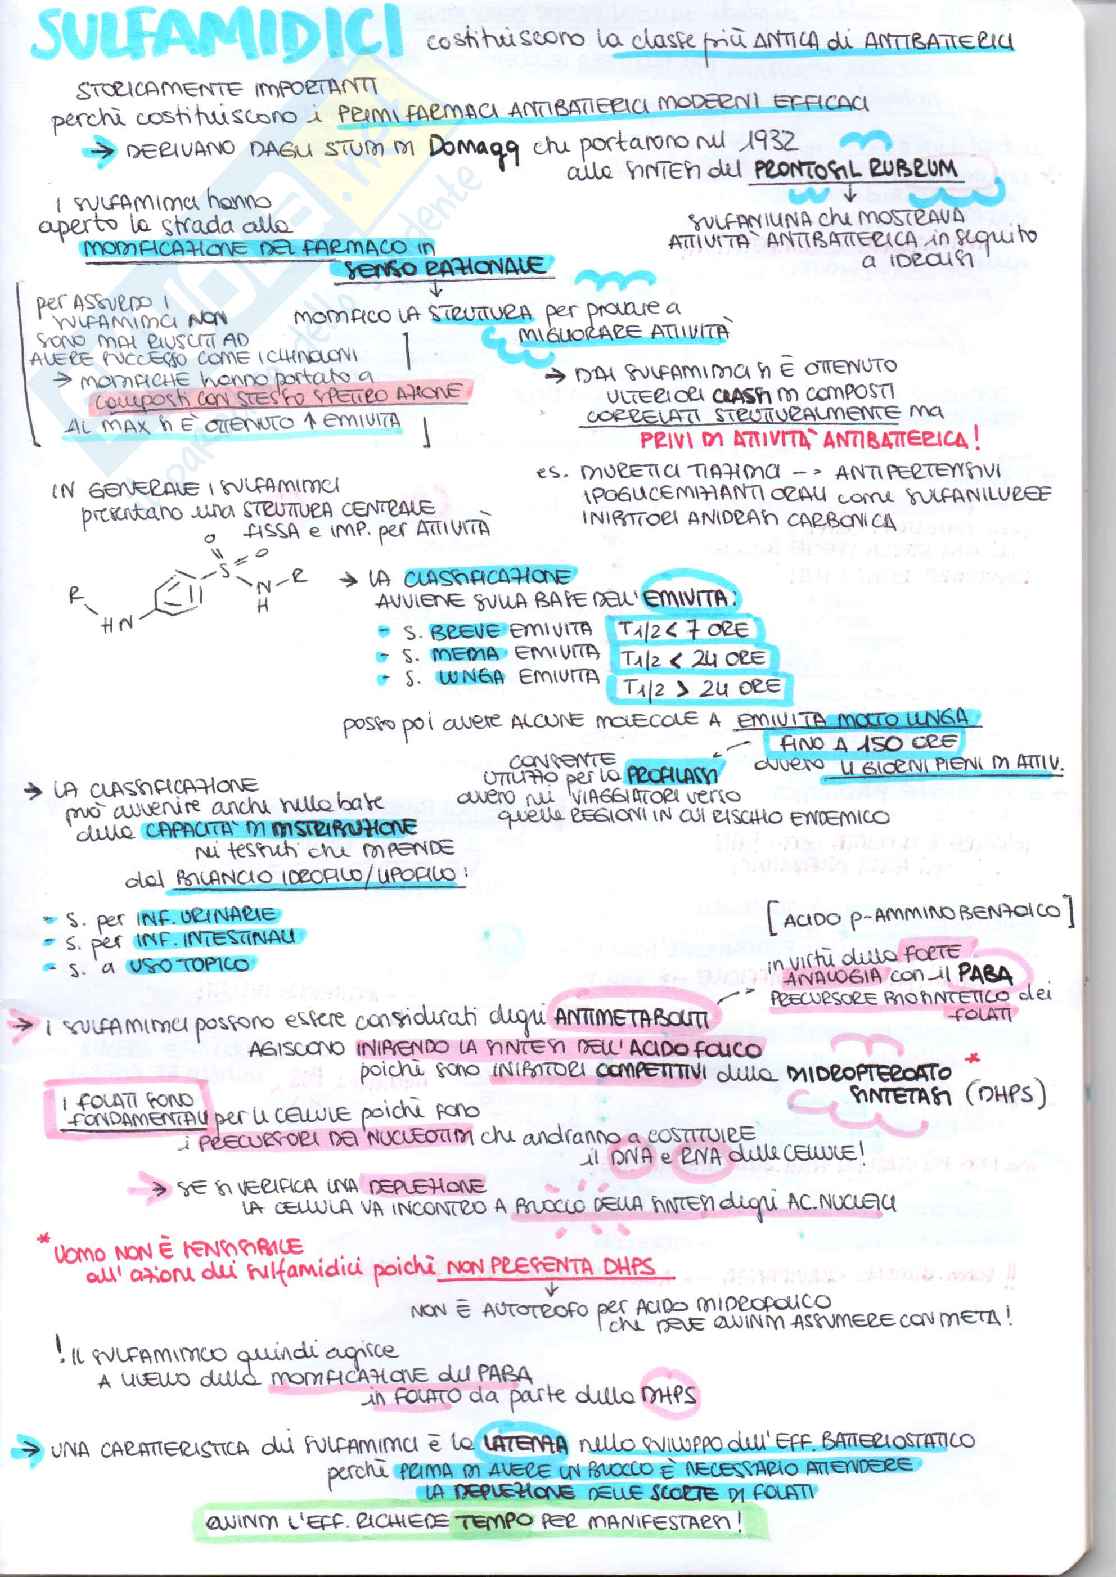 SULFAMIDICI costituiscono la classe più ANTICA di ANTIBATTERICI
STORICAMENTE IMPORTANTI
perchè costituiscono i PRIMI FARMACI ANTIBATTERICI MODERNI EFFICACI
→ DERIVANO DAGLI STUDI DI Domagg che portarono nel 1932
alla SINTESI del PRONTOSIL RUBRUM
SULFANILINA che MOSTRAVA
ATTIVITÀ ANTIBATTERICA in seguito
a IDROLISI
I SULFAMIDICI hanno
aperto la strada alla
MODIFICAZIONE DEL FARMACO in
SENSO RAZIONALE
MODIFICO LA STRUTTURA per provare a
MIGLIORARE ATTIVITÀ
per ASSURDO I
SULFAMIDICI NON
SONO MAI RIUSCITI AD
AVERE SUCCESSO COME I CHINOLONI
→ MODIFICHE hanno portato a
COMPOSTI CON STESSO SPETTRO AZIONE
AL MAX SI È OTTENUTO ↑ EMIVITA
→ DAI SULFAMIDICI SI È OTTENUTO
ULTERIORI CLASSI DI COMPOSTI
CORRELATI STRUTTURALMENTE ma
PRIVI DI ATTIVITÀ ANTIBATTERICA!
es. DIURETICI TIAZIDICI --> ANTIPERTENSIVI
IPOGLICEMIZZANTI ORALI come SULFANILUREE
INIBITORI ANIDRASI CARBONICA
IN GENERALE I SULFAMIDICI
presentano una STRUTTURA CENTRALE
FISSA e IMP. per ATTIVITÀ
O
S = O
N-R
H
R
HN
→ LA CLASSIFICAZIONE
AVVIENE SULLA BASE DELL'EMIVITA:
- S. BREVE EMIVITA T1/2 < 7 ORE
- S. MEDIA EMIVITA T1/2 < 24 ORE
- S. LUNGA EMIVITA T1/2 > 24 ORE
posso poi avere ALCUNE MOLECOLE A EMIVITA MOLTO LUNGA
FINO A 150 ORE
ovvero 4 GIORNI PIENI DI ATTIV.
CONSENTE
UTILIZZO per la PROFILASSI
ovvero nei VIAGGIATORI verso
quelle REGIONI IN CUI RISCHIO ENDEMICO
→ LA CLASSIFICAZIONE
può avvenire anche sulla base
della CAPACITÀ DI DISTRIBUZIONE
nei tessuti che DIPENDE
dal BILANCIO IDROFILO/LIPOFILO:
- S. per INF. URINARIE
- S. per INF. INTESTINALI
- S. a USO TOPICO
[ACIDO p-AMMINO BENZOICO]
in virtù della FORTE
ANALOGIA con il PABA
PRECURSORE BIOSINTETICO dei
FOLATI
→ i SULFAMIDICI possono essere considerati degli ANTIMETABOLITI
AGISCONO INIBENDO LA SINTESI DELL'ACIDO FOLICO
poichè sono INIBITORI COMPETITIVI della DIIDROPTEROATO *
SINTETASI (DHPS)
I FOLATI SONO
FONDAMENTALI per LE CELLULE poichè sono
i PRECURSORI DEI NUCLEOTIDI che andranno a COSTITUIRE
il DNA e RNA delle CELLULE!
→ SE SI VERIFICA UNA DEPLEZIONE
LA CELLULA VA INCONTRO A BLOCCO DELLA SINTESI degli AC. NUCLEICI
* UOMO NON È SENSIBILE
all'azione dei sulfamidici poichè NON PRESENTA DHPS
NON È AUTOTROFO per ACIDO DIIDROFOLICO
che DEVE QUINDI ASSUMERE CON DIETA!
! IL SULFAMIDICO quindi agisce
A LIVELLO della MODIFICAZIONE del PABA
in FOLATO da parte della DHPS
→ UNA CARATTERISTICA dei SULFAMIDICI è la LATENZA nello SVILUPPO dell'EFF. BATTERIOSTATICO
perchè PRIMA DI AVERE UN BLOCCO È NECESSARIO ATTENDERE
LA DEPLEZIONE DELLE SCORTE DI FOLATI
QUINDI L'EFF. RICHIEDE TEMPO PER MANIFESTARSI!